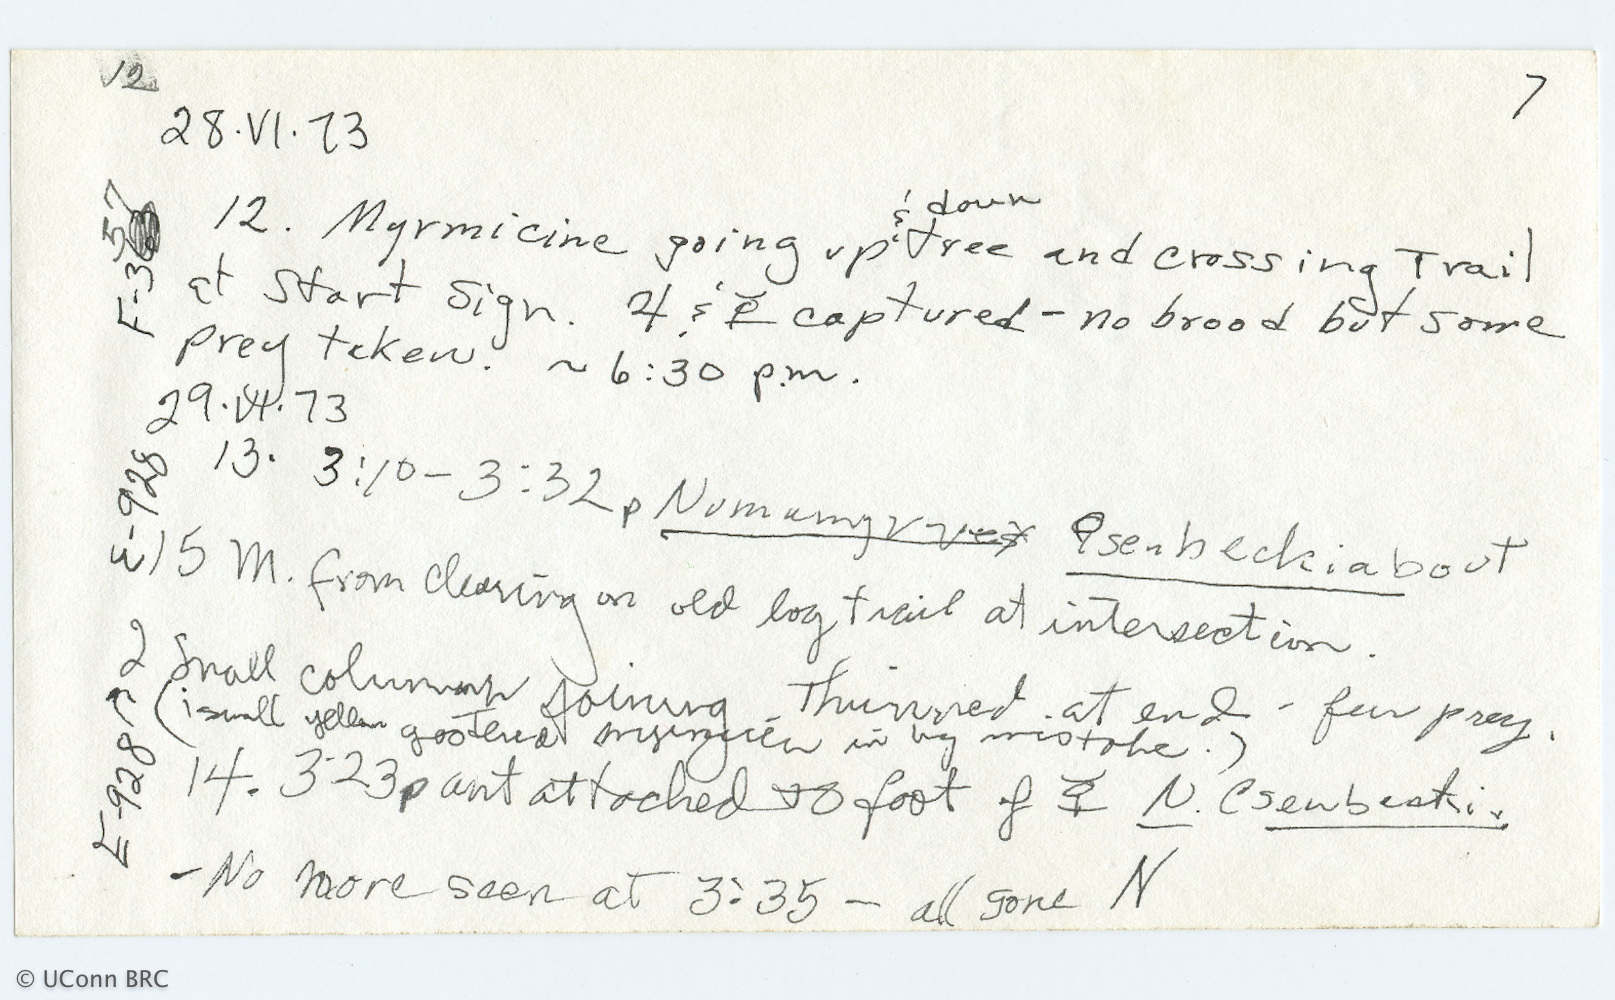 12
7
28·VI·73
F-357
12. Myrmicine going up & down tree and crossing Trail
at Start Sign. 4 & ☿ captured - no brood but some
prey taken. ~ 6:30 p.m.
29·VI·73
E-928
13. 3:10 - 3:32p Nomamyrmex esenbecki about
15 M. from clearing on old log trail at intersection.
Small column joining. Thinned at end - few prey.
(1 small yellow in by mistake.)
E-928 2
14. 3:23p ant attached to foot of ☿ N. esenbecki.
- No more seen at 3:35 - all gone N
© UConn BRC